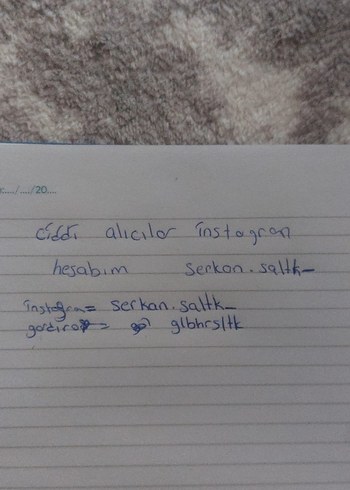 :..../..../20....
ciddi alıcılar instagram
hesabım serkan.saltk_
instagram= serkan.saltk_
= glbhrsltk